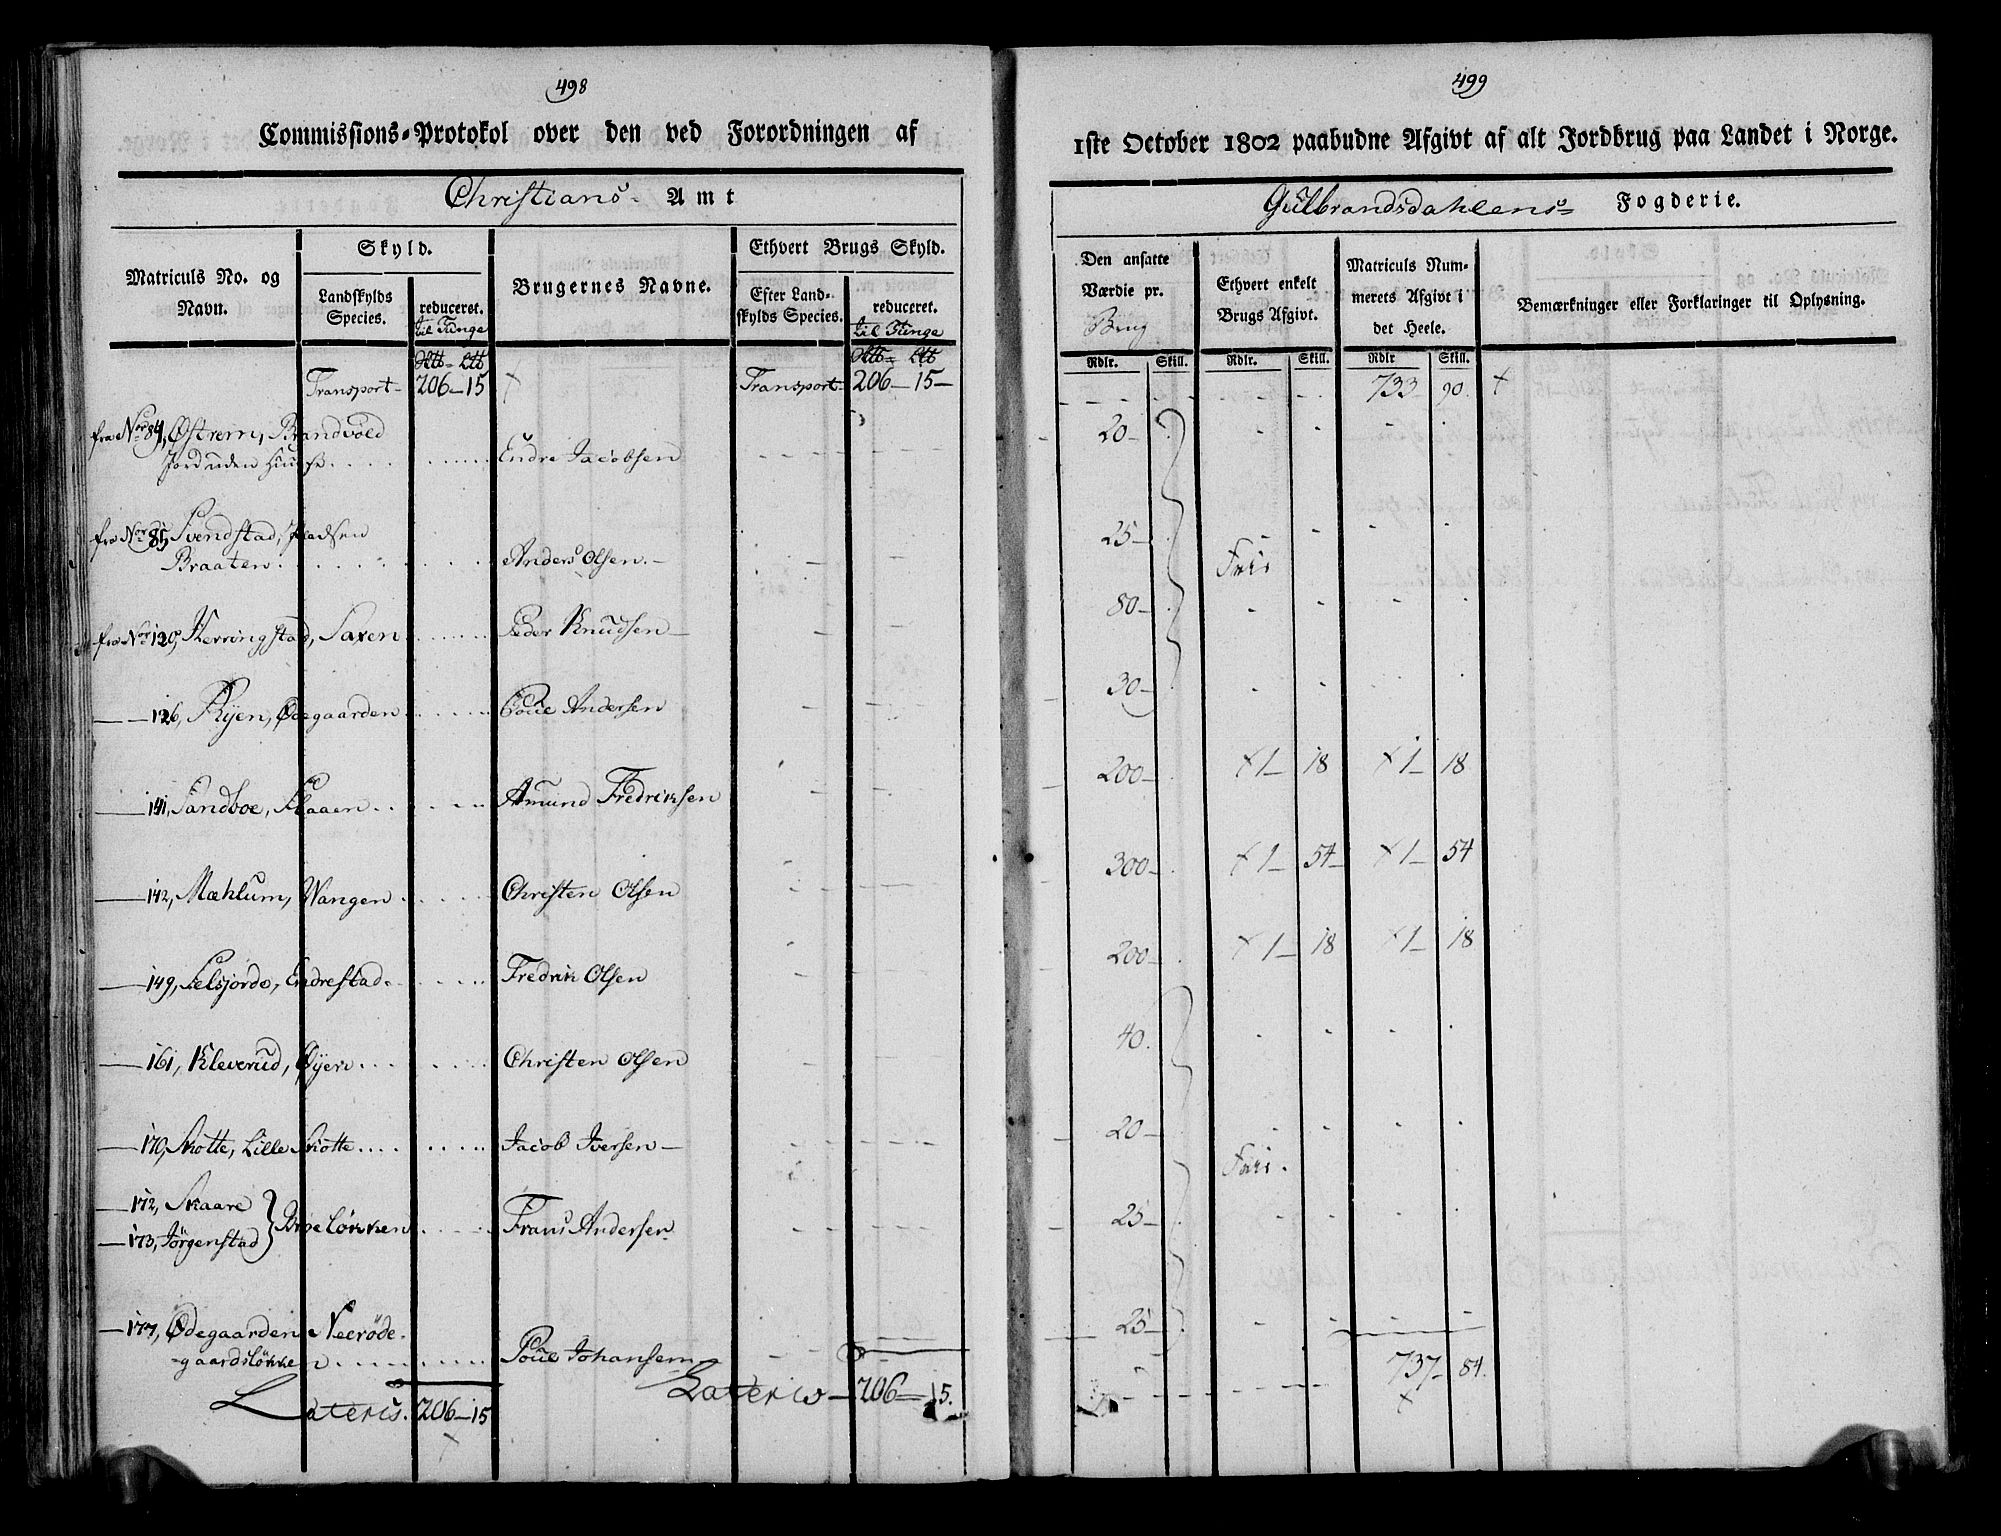 498
Commissions-Protokol over den ved Forordningen af
Christians- Amt
Matriculs No. og Navn.
Skyld.
Landskylds Species.
reduceret.
til Tunge
Brugernes Navne.
Ethvert Brugs Skyld.
Efter Landskylds Species.
reduceret.
til Tunge
Transport- 206-15 Transport- 206-15-
fra Nor 84, Østrem, Brandvold
Jord uden Huuse Endre Jacobsen
fra Nor 85, Svendstad, Pladsen
Braaten Anders Olsen
fra Nor 120, Kerringstad, Saxen Peder Knudsen
126, Ryen, Ødegaarden Poue Andersen
141, Sandboe, Flaaen Amund Fredriksen
142, Mæhlum, Wangen Christen Olsen
149, Selsjorde, Endrestad Fredrik Olsen
161, Kleverud, Øyern Christen Olsen
170, Skotte, Lille Skotte Jacob Iversen
172, Skaare
173, Jørgenstad } Broe løkken Frans Andersen
177, Ødegaarden Neerøde-
gaardsløkken Poue Johansen
Lateris. 206-15 Lateris- 206-15.
499
1ste October 1802 paabudne Afgivt af alt Jordbrug paa Landet i Norge.
Gulbrandsdahlens- Fogderie.
Den ansatte Værdie pr.
Brug
Rdlr. Skill.
Ethvert enkelt Brugs Afgivt.
Rdlr. Skill.
Matriculs Nummerets Afgivt i det Heele.
Rdlr Skill.
Bemærkninger eller Forklaringer til Oplysning.
733 90.
20
25
Frie
80
30
200 1 18 1 18
300 1 54 1 54
200 1 18 1 18
40
20
Frie
25
25
737 84.